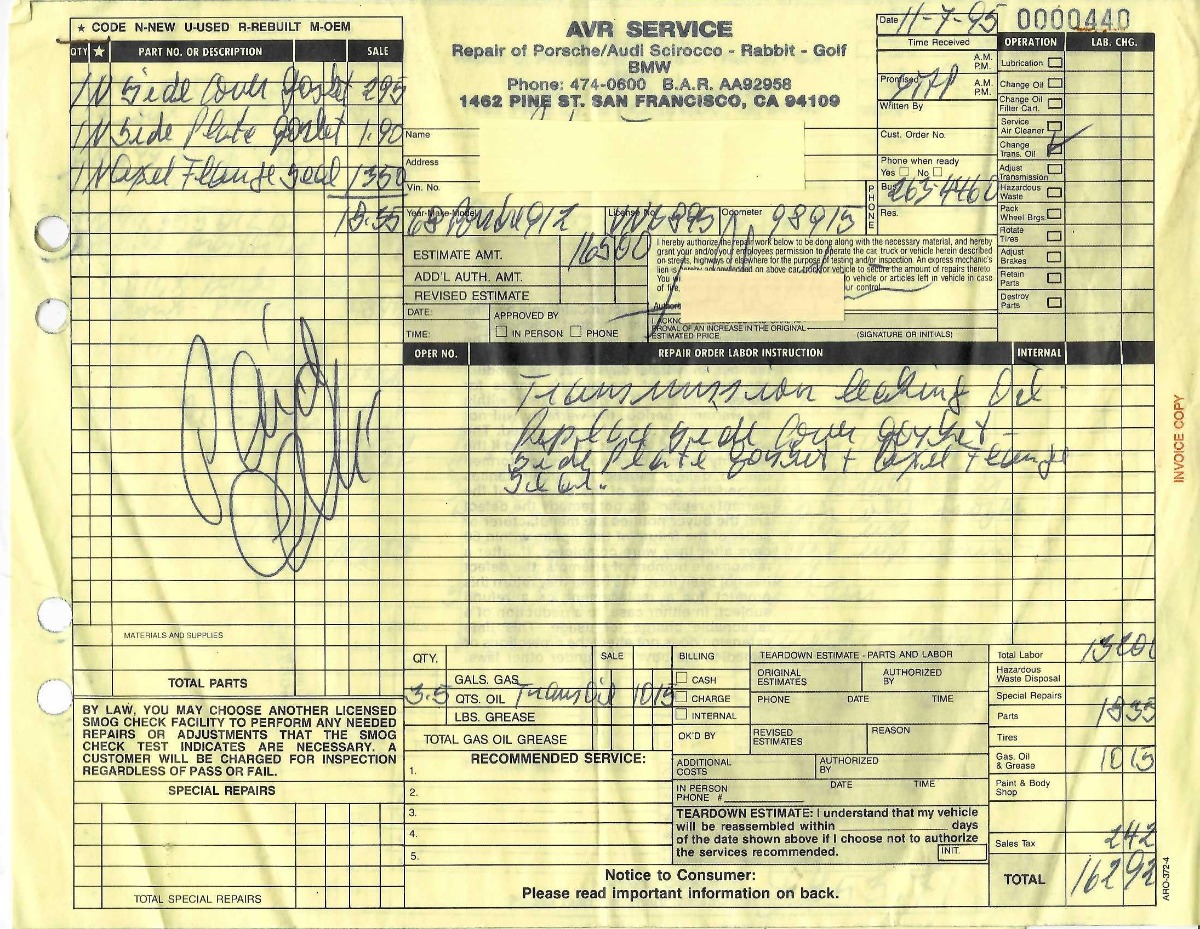 ★ CODE N-NEW U-USED R-REBUILT M-OEM
QTY ★ PART NO. OR DESCRIPTION SALE
1 N Side Cover Gasket 295
1 N Side Plate Gasket 1.90
1 N Axel Flange Seal 1350
18.35
Paid
MATERIALS AND SUPPLIES
TOTAL PARTS
BY LAW, YOU MAY CHOOSE ANOTHER LICENSED
SMOG CHECK FACILITY TO PERFORM ANY NEEDED
REPAIRS OR ADJUSTMENTS THAT THE SMOG
CHECK TEST INDICATES ARE NECESSARY. A
CUSTOMER WILL BE CHARGED FOR INSPECTION
REGARDLESS OF PASS OR FAIL.
SPECIAL REPAIRS
TOTAL SPECIAL REPAIRS
AVR SERVICE
Repair of Porsche/Audi Scirocco - Rabbit - Golf
BMW
Phone: 474-0600 B.A.R. AA92958
1462 PINE ST. SAN FRANCISCO, CA 94109
Name
Address
Vin. No.
Year-Make-Model 68 Porsche 912 License No. Odometer 98915
Date 11-7-95 0000440
Time Received
A.M.
P.M.
Promised A.M.
P.M.
Written By
Cust. Order No.
Phone when ready
Yes No
PHONE
Bus. 263-4460
Res.
OPERATION LAB. CHG.
Lubrication
Change Oil
Change Oil
Filter Cart.
Service
Air Cleaner
Change
Trans. Oil
Adjust
Transmission
Hazardous
Waste
Pack
Wheel Brgs.
Rotate
Tires
Adjust
Brakes
Retain
Parts
Destroy
Parts
ESTIMATE AMT. 16500
ADD'L AUTH. AMT.
REVISED ESTIMATE
DATE: APPROVED BY
TIME: IN PERSON PHONE
I hereby authorize the repair work below to be done along with the necessary material, and hereby
grant your and/or your employees permission to operate the car, truck or vehicle herein described
on streets, highways or elsewhere for the purpose of testing and/or inspection. An express mechanic's
lien is hereby acknowledged on above car, truck or vehicle to secure the amount of repairs thereto
You to vehicle or articles left in vehicle in case
of fire, our control.
PROVAL OF AN INCREASE IN THE ORIGINAL
ESTIMATED PRICE. (SIGNATURE OR INITIALS)
OPER NO. REPAIR ORDER LABOR INSTRUCTION INTERNAL
Transmission leaking Oil -
Replace Side Cover Gasket -
Side Plate Gasket + Axel Flange
Seal.
INVOICE COPY
QTY. SALE
GALS. GAS
3.5 QTS. OIL Trans Oil 1015
LBS. GREASE
TOTAL GAS OIL GREASE
RECOMMENDED SERVICE:
1.
2.
3.
4.
5.
BILLING
CASH
CHARGE
INTERNAL
OK'D BY
TEARDOWN ESTIMATE - PARTS AND LABOR
ORIGINAL
ESTIMATES AUTHORIZED
BY
PHONE DATE TIME
REVISED
ESTIMATES REASON
ADDITIONAL
COSTS AUTHORIZED
BY
IN PERSON DATE TIME
PHONE #
TEARDOWN ESTIMATE: I understand that my vehicle
will be reassembled within days
of the date shown above if I choose not to authorize
the services recommended. INIT.
Notice to Consumer:
Please read important information on back.
Total Labor 13200
Hazardous
Waste Disposal
Special Repairs
Parts 1835
Tires
Gas. Oil
& Grease 1015
Paint & Body
Shop
Sales Tax 242
TOTAL 16292
ARO-372-4